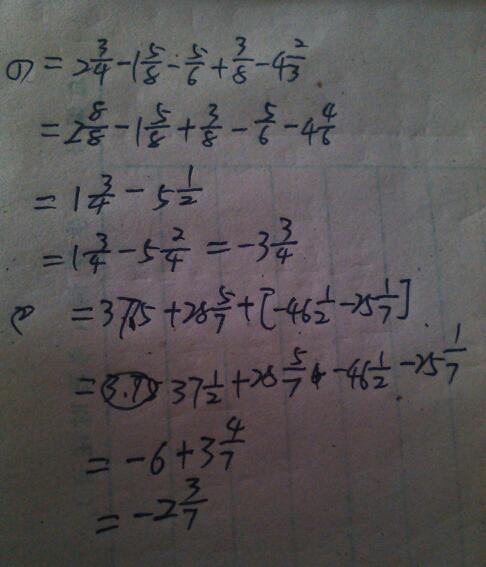 (1) = 2 3/4 - 1 5/8 - 5/6 + 3/8 - 4 2/3
= 2 8/8 - 1 5/8 + 3/8 - 5/6 - 4 4/6
= 1 3/4 - 5 1/2
= 1 3/4 - 5 2/4 = -3 3/4
= 37.5 + 28 5/7 + [-46 1/2 - 25 1/7]
= 37 1/2 + 28 5/7 - 46 1/2 - 25 1/7
= -6 + 3 4/7
= -2 3/7